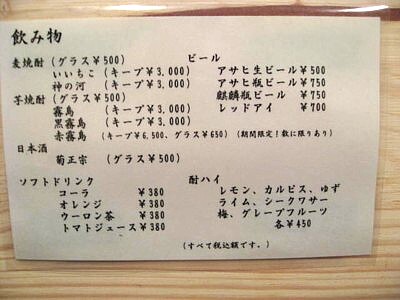 飲み物
麦焼酎 (グラス¥500)
いいちこ (キープ¥3,000)
神の河 (キープ¥3,000)
芋焼酎 (グラス¥500)
霧島 (キープ¥3,000)
黒霧島 (キープ¥3,000)
赤霧島 (キープ¥6,500、グラス¥650) (期間限定!数に限りあり)
日本酒
菊正宗 (グラス¥500)
ビール
アサヒ生ビール ¥500
アサヒ瓶ビール ¥750
麒麟瓶ビール ¥750
レッドアイ ¥700
ソフトドリンク
コーラ ¥380
オレンジ ¥380
ウーロン茶 ¥380
トマトジュース¥380
酎ハイ
レモン、カルピス、ゆず
ライム、シークワサー
梅、グレープフルーツ
各¥450
(すべて税込額です。)